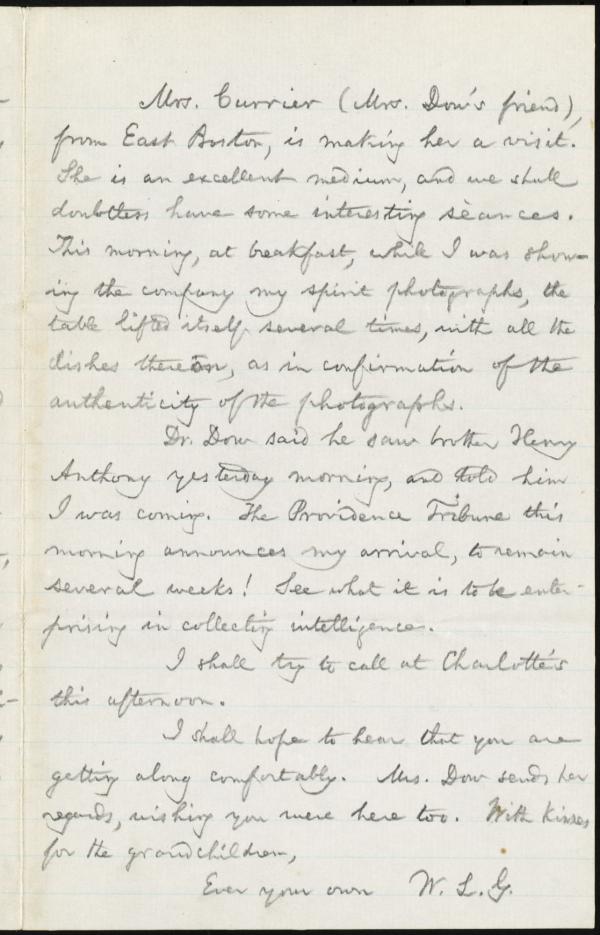 Mrs. Currier (Mrs. Dow's friend),
from East Boston, is making her a visit.
She is an excellent medium, and we shall
doubtless have some interesting sèances.
This morning, at breakfast, while I was show-
ing the company my spirit photographs, the
table lifted itself several times, with all the
dishes thereon, as in confirmation of the
authenticity of the photographs.
Dr. Dow said he saw brother Henry
Anthony yesterday morning, and told him
I was coming. The Providence Tribune this
morning announces my arrival, to remain
several weeks! See what it is to be enter-
prising in collecting intelligence.
I shall try to call at Charlotte's
this afternoon.
I shall hope to hear that you are
getting along comfortably. Mrs. Dow sends her
regards, wishing you were here too. With kisses
for the grandchildren,
Ever your own W. L. G.